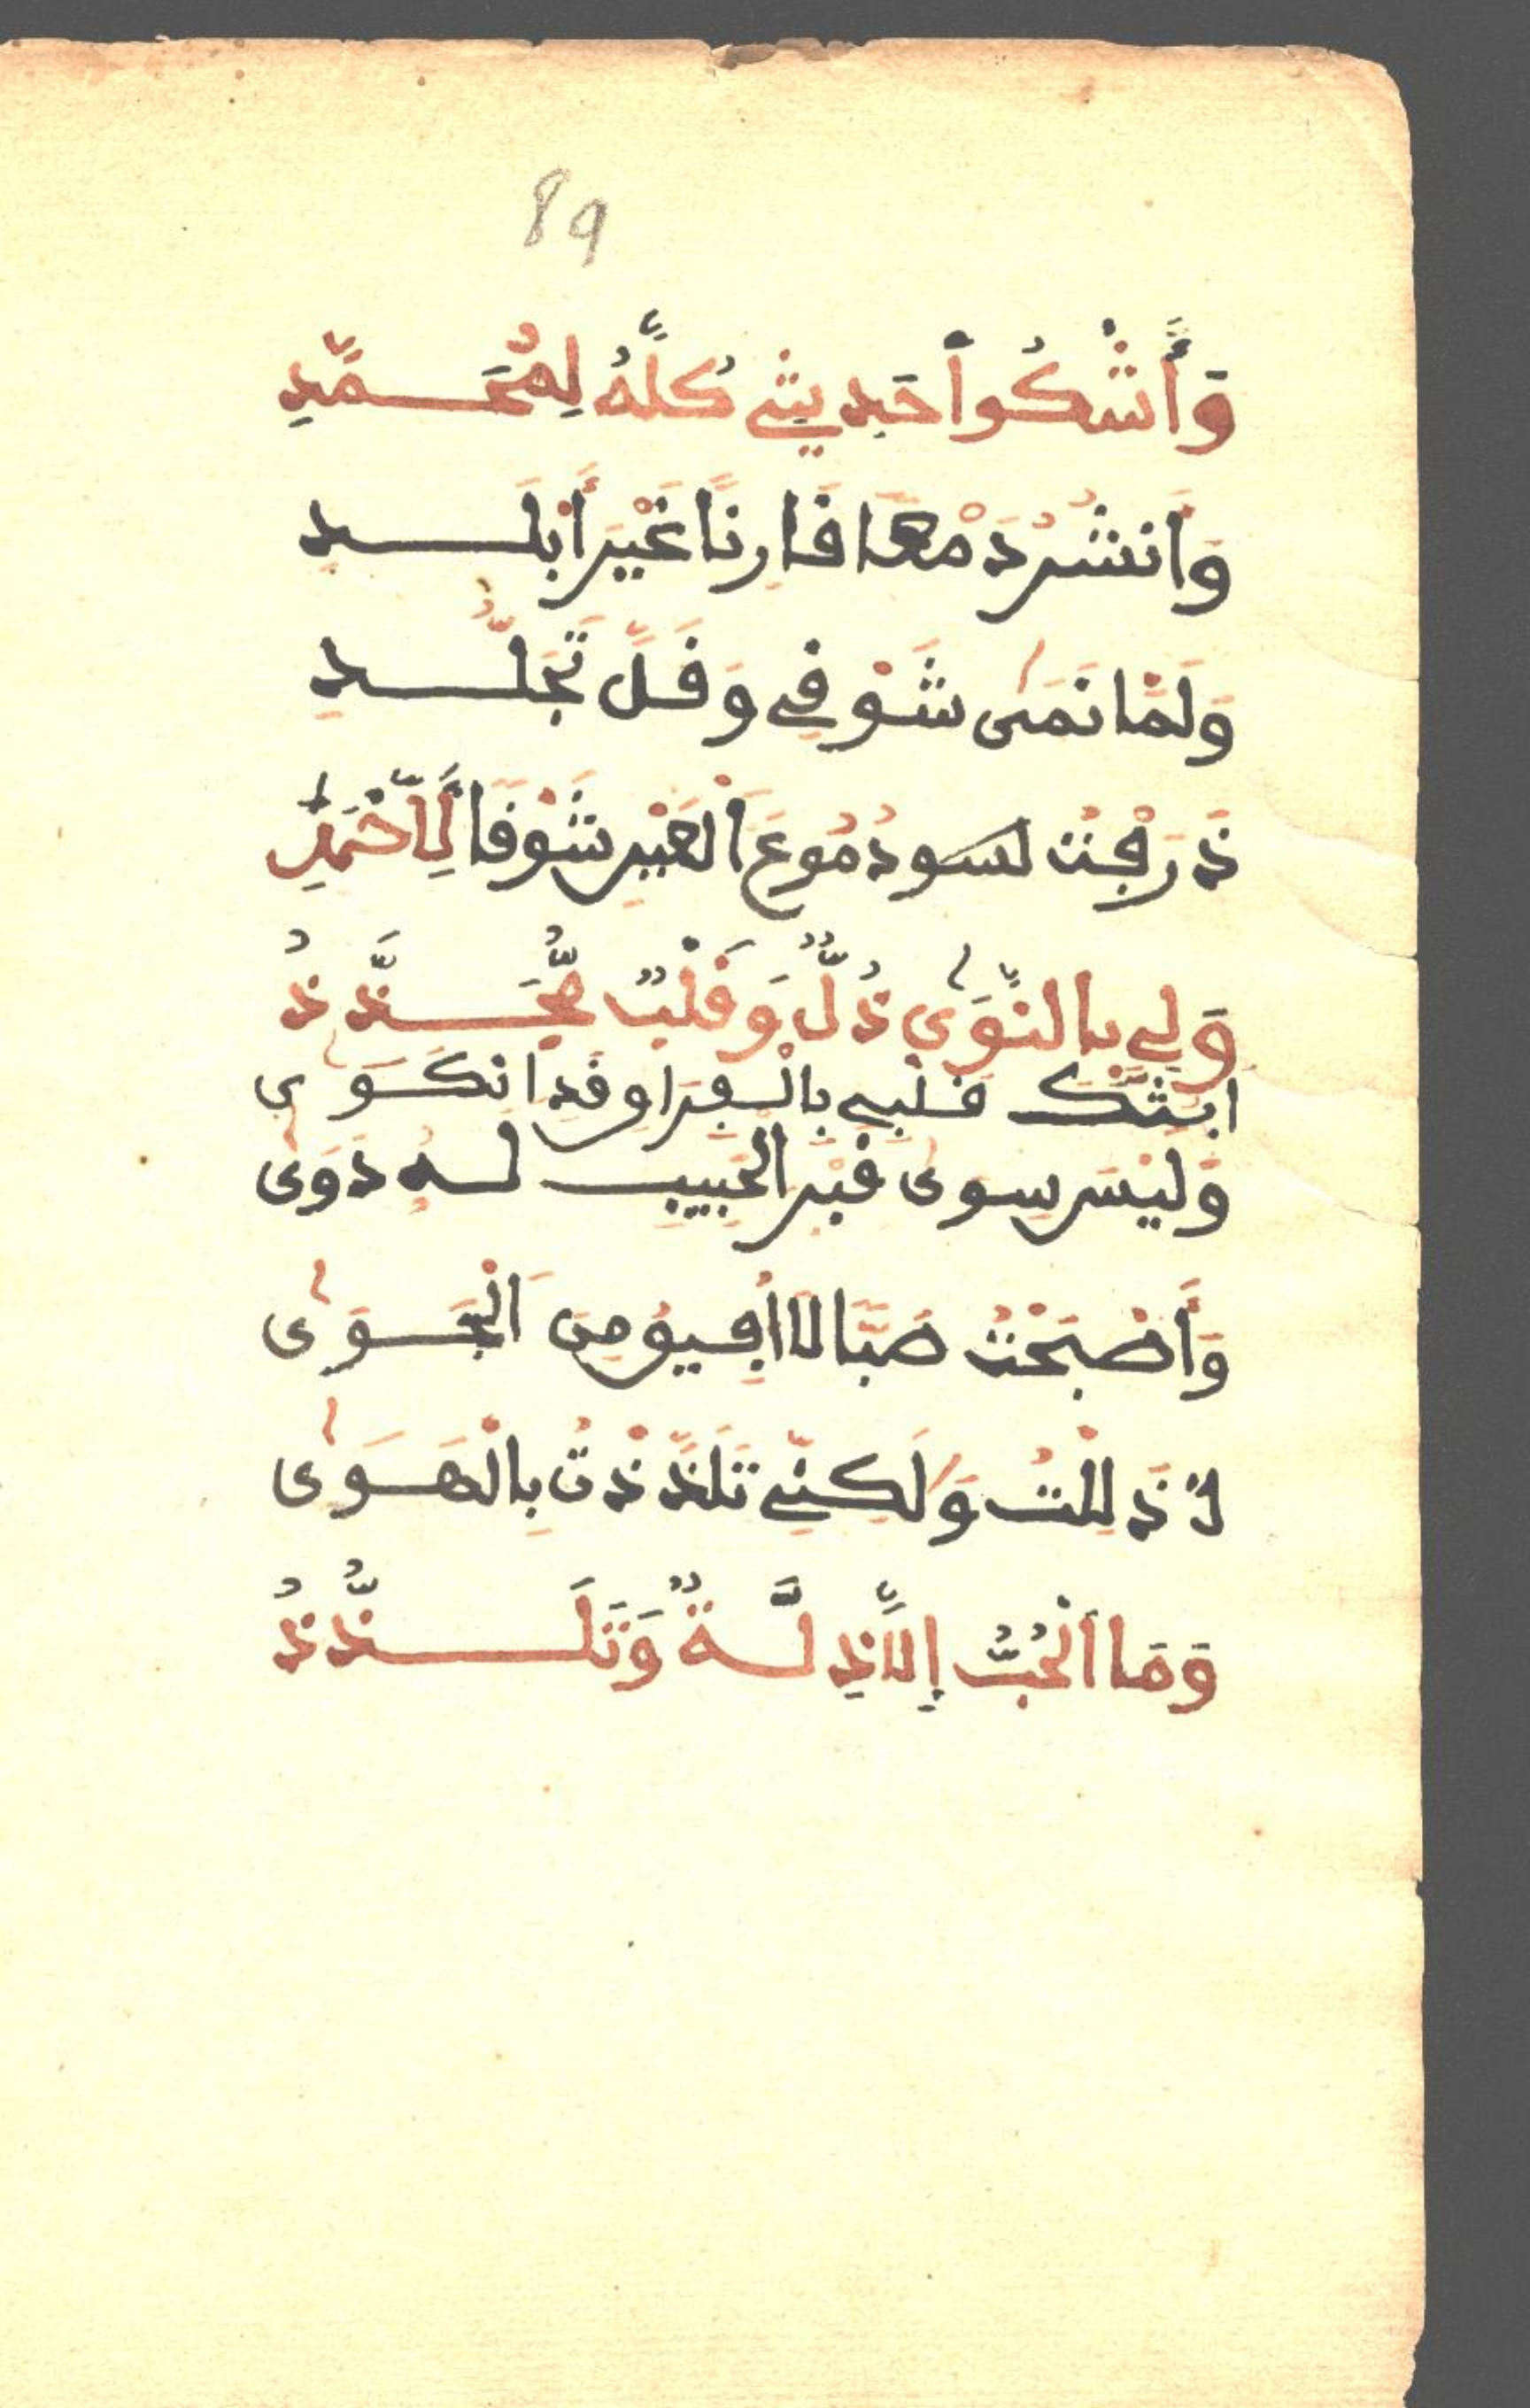 89
وَأَشْكُواْ حَدِيثِي كُلَّهُ لِمُحَمَّدِ
وَانشُرُ دَمْعًا فَارِنًا غَيْرَ أَبْلَد
وَلَمَّا نَمَى شَوْفِي وَفَلَّ تَجَلُّدِ
ذَرَفْتُ لسَو دُمُوعَ الْعَيْرِ شَوْفًا لِلأَحْمَدِ
وَلِي بِالنَّوَى ذُلٌّ وَفَلْبٌ مُّجَذَّذُ
ابثك فلبي بالْفِرَاو فَدِ انْكَوَى
وَلَيْسَ سِوَى فَبْرِ الْحَبِيبِ لَهُ دَوَى
وَأَصْبَحْتُ صَبًّا لَا أُفِيوُ مِنَ الْجَوَى
ذَلِلْتُ وَلَكِنِّي تَلَذَّذْتُ بِالْهَوَى
وَمَا الْحُبُّ إِلَّا ذِلَّةٌ وَتَلَذُّذُ